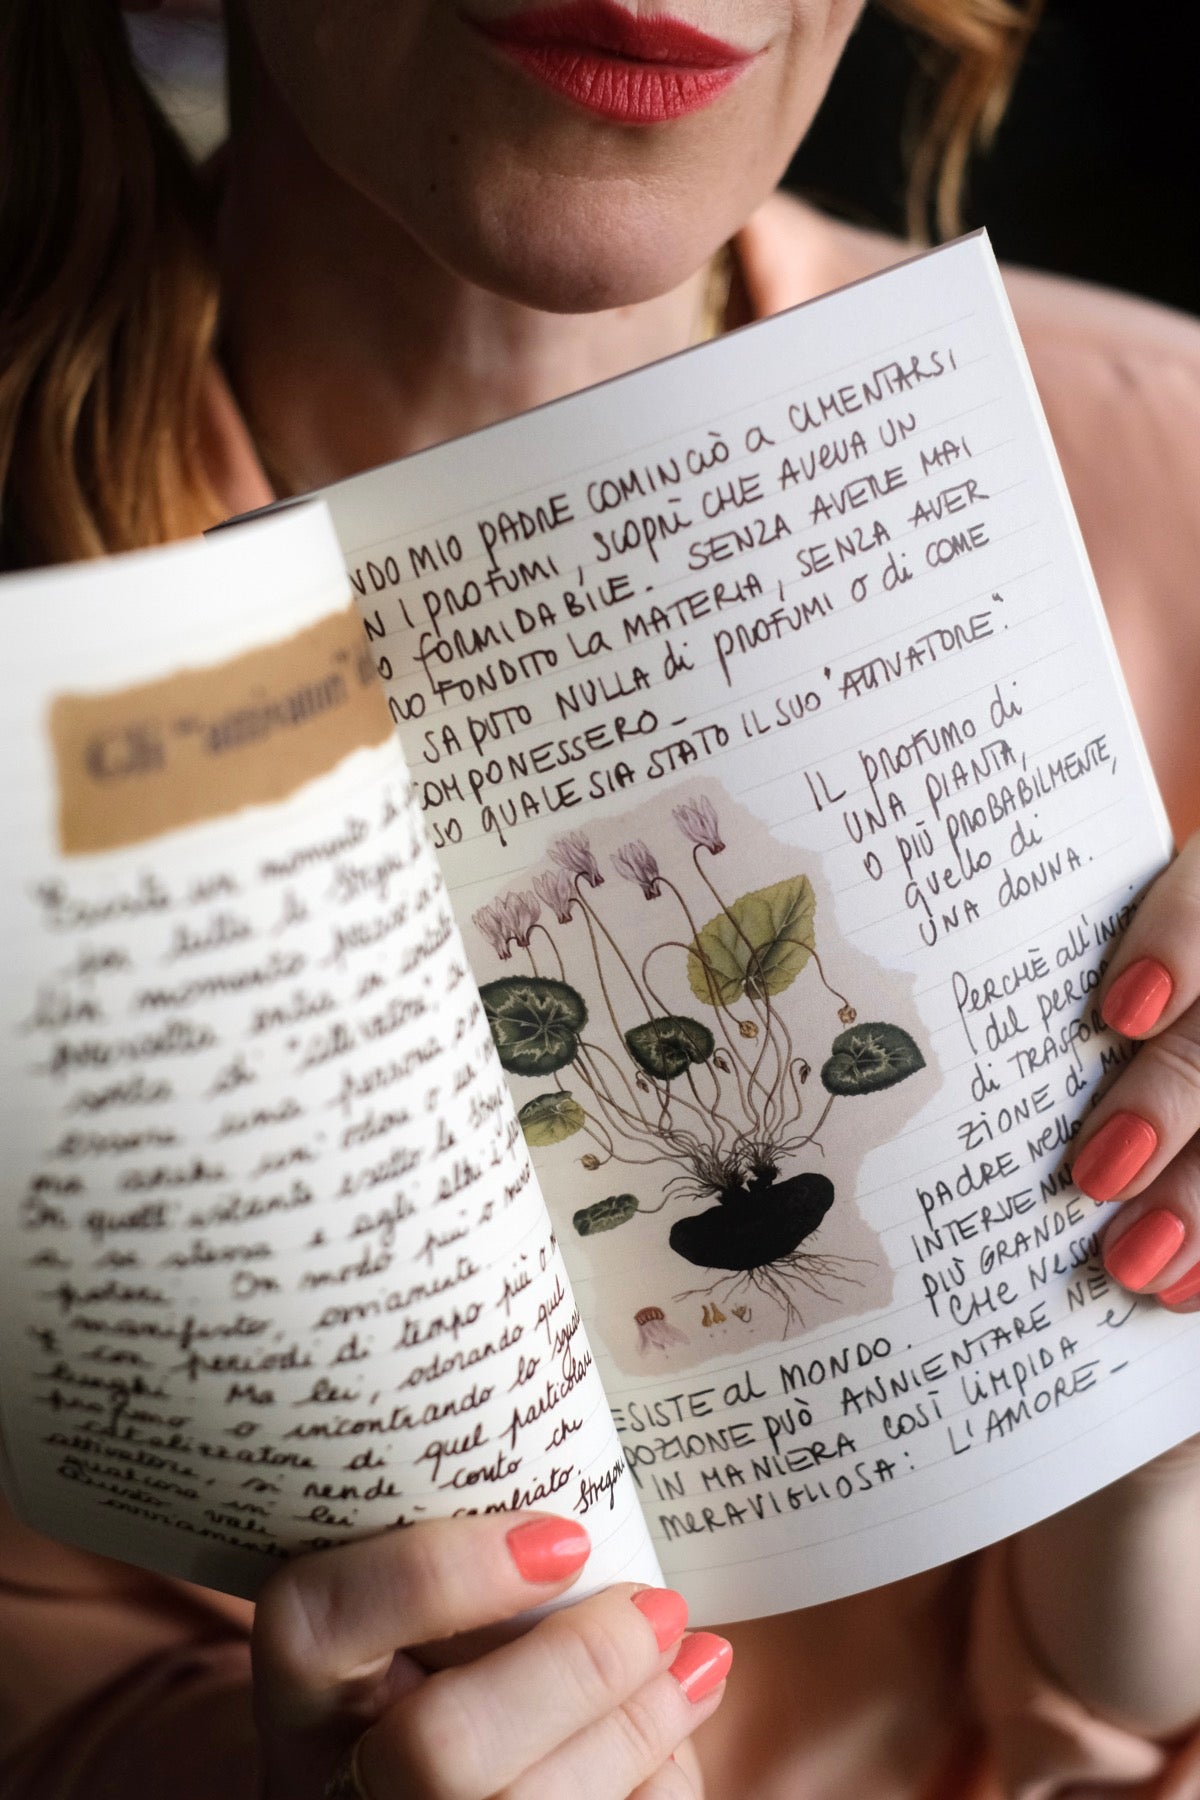 Gli "attivatori"
Esiste un momento
per tutte le Streghe
Un momento preciso in
avvenetta entra in contatto
sorta di "attivatore".
essere una persona o
ma anche un odore o
In quell'istante esatto la Strega
a se stessa e agli altri i
poteri. In modo più o meno
manifesto, ovviamente.
e con periodi di tempo più o
lunghi. Ma lei, odorando quel
profumo o incontrando lo sguardo
catalizzatore di quel particolare
attivatore, si rende conto che
qualcosa in lei è cambiato.
Questo vale Strego
ovviamente
NDO MIO PADRE COMINCIÒ A CIMENTARSI
N I PROFUMI, SCOPRÌ CHE AVEVA UN
O FORMIDABILE. SENZA AVERE MAI
NO FONDITO LA MATERIA, SENZA AVER
SAPUTO NULLA di PROFUMI O di COME
COMPONESSERO –
SO QUALE SIA STATO IL SUO "ATTIVATORE".
IL PROFUMO di
UNA PIANTA,
O PIÙ PROBABILMENTE,
quello di
UNA dONNA.
PERCHÈ all'INIZI
del PERCO
di TRASFOR
ZIONE di MI
PADRE Nello
INTERVENN
PIÙ GRANDE
CHE NESSU
ESISTE al MONDO.
POZIONE PUÒ ANNIENTARE NÈ
IN MANIERA COSÌ LIMPIDA e
MERAVIGLIOSA: L'AMORE –